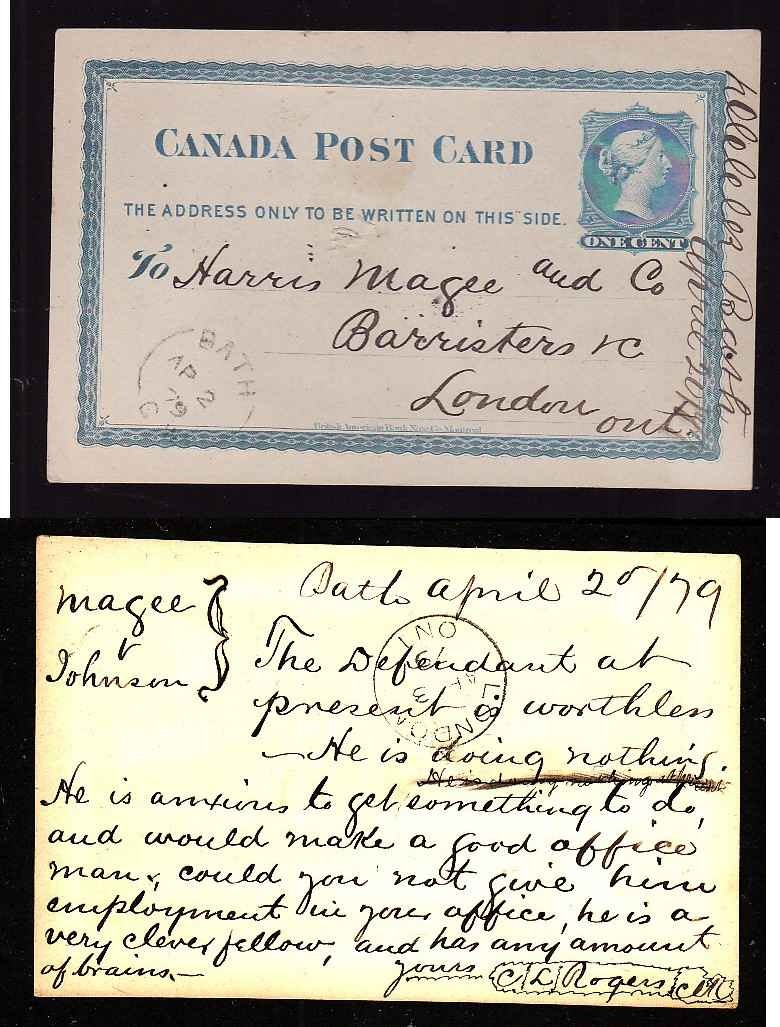 CANADA POST CARD
THE ADDRESS ONLY TO BE WRITTEN ON THIS SIDE.
ONE CENT
To Harris Magee and Co
Barristers &c
London
Ont
BATH
AP 2
79
British American Bank Note Co. Montreal
Bath April 2d/79
Magee
v
Johnson
The Defendant at
present is worthless
— He is doing nothing.
He is doing nothing at present
He is anxious to get something to do,
and would make a good office
man, could you not give him
employment in your office, he is a
very clever fellow, and has any amount
of brains.—
yours C L Rogers
LONDON
ONT
AP 3